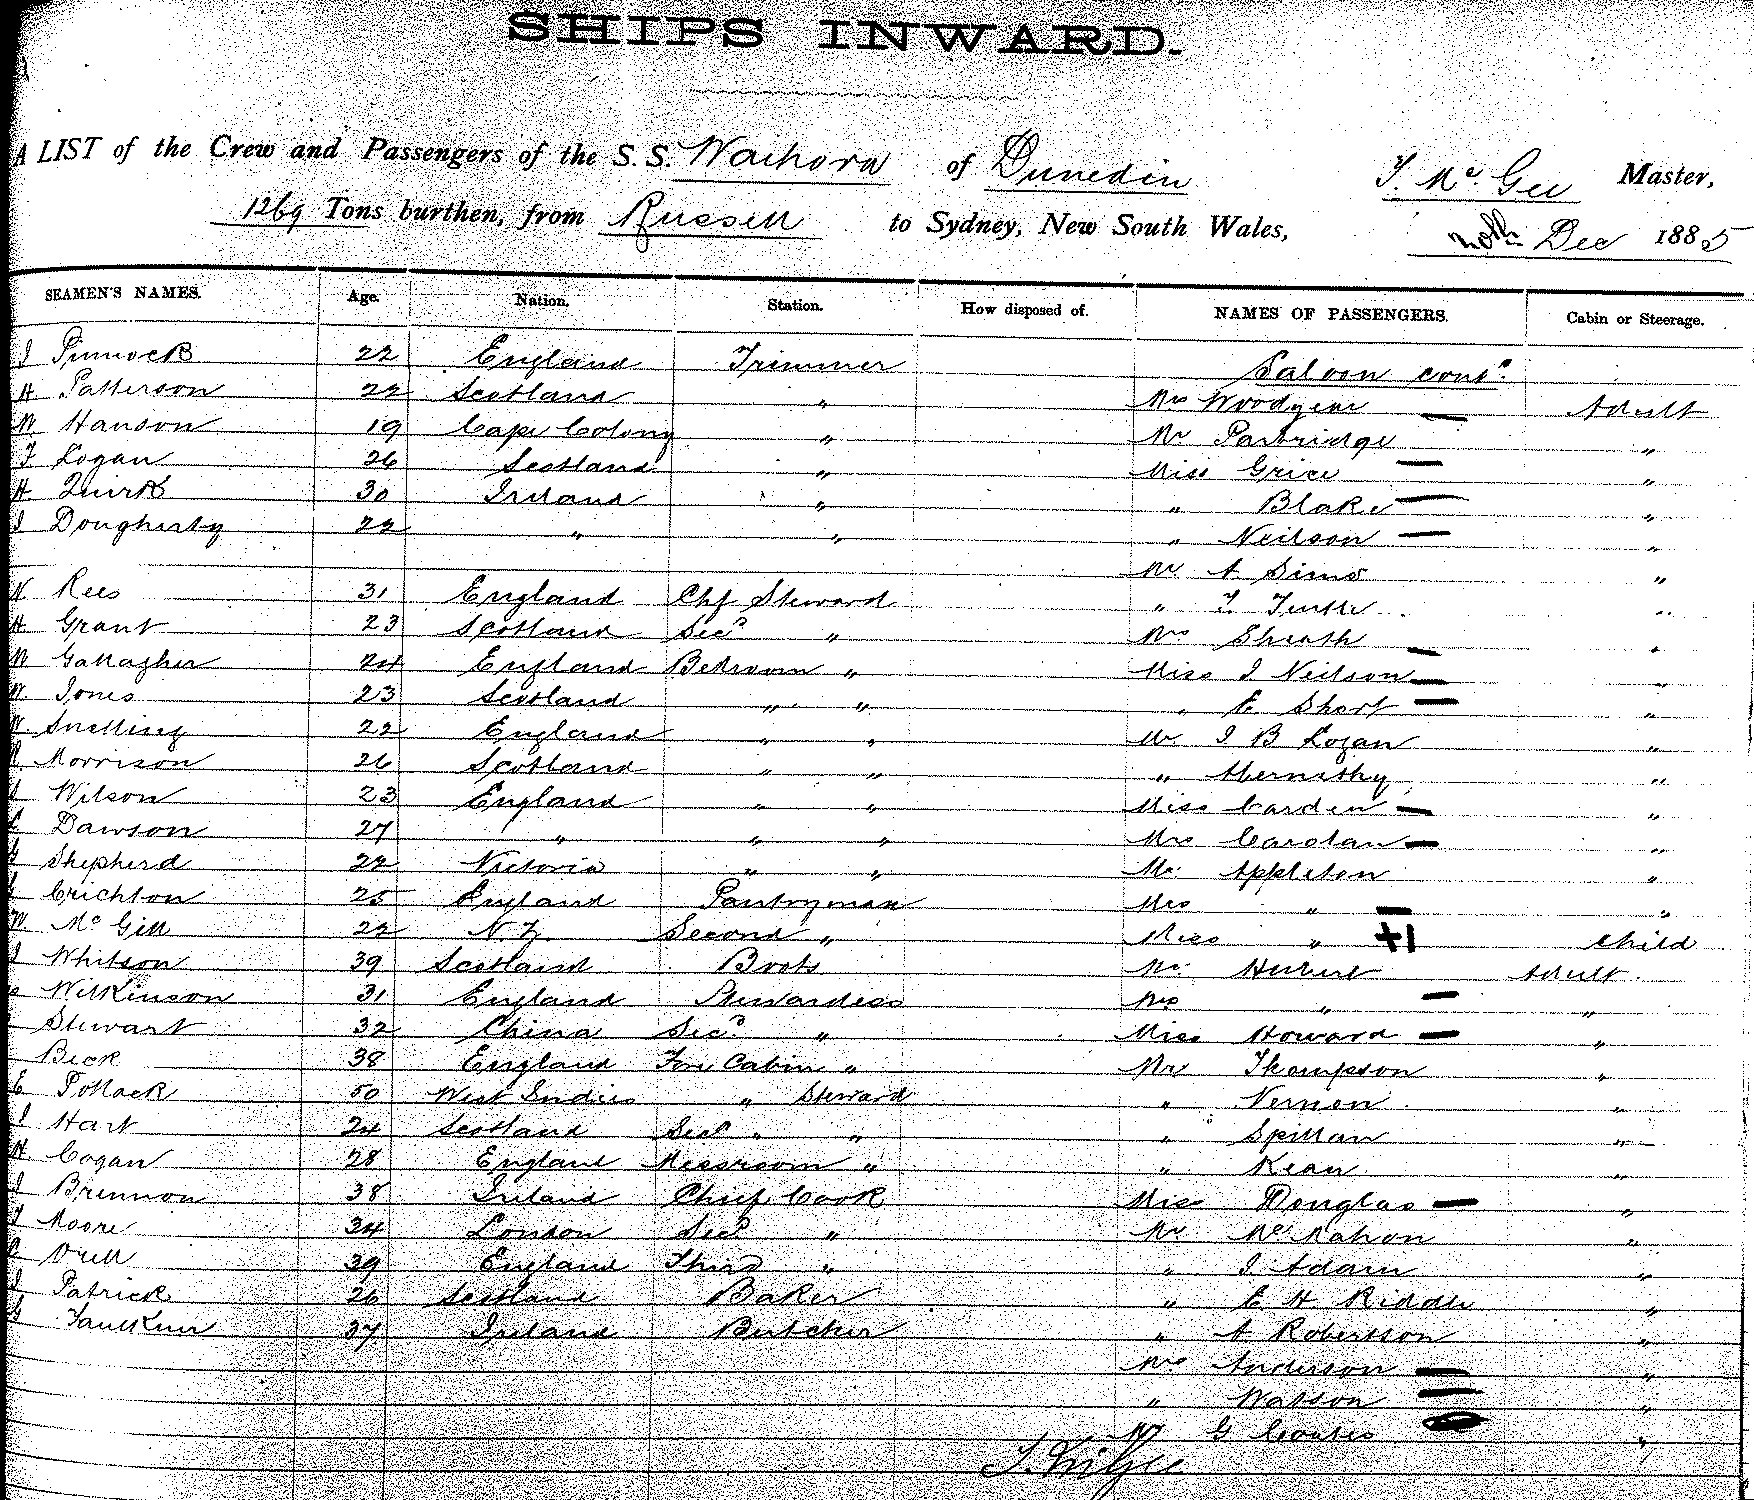 SHIPS INWARD.
A LIST of the Crew and Passengers of the S.S. Waihora of Dunedin T. Mc Gee Master,
1269 Tons burthen, from Russell to Sydney, New South Wales, Dec 1885
SEAMEN'S NAMES. Age. Nation. Station. How disposed of. NAMES OF PASSENGERS. Cabin or Steerage.
J Pinnock 22 England Trimmer Saloon contd.
H Patterson 22 Scotland " Mrs Woodgear Adult
W Hanson 19 Cape Colony " Mr Partridge "
J Logan 26 Scotland " Miss Grice "
H Quirk 30 Ireland " " Blake "
J Dougherty 22 " " " Neilson "
Mr A Sims "
Rees 31 England Chf Steward " "
H Grant 23 Scotland Secd " Mrs Sheath "
W Gallagher 24 England Bedroom " Miss J Neilson "
W Jones 23 Scotland " " " E Short "
W Snelling 22 England " " Mr J B Logan "
Morrison 26 Scotland " " " Abernethy "
Wilson 23 England " " Miss Carden "
Dawson 27 " " " Mrs Carolan "
Shepherd 22 Victoria " " Mr Appleton "
Crichton 25 England Pantryman Mrs " "
W Mc Gill 22 N.Z. Second " Miss " +1 Child
J Whitson 39 Scotland Boots Mr Hubert Adult
Wilkinson 31 England Stewardess Mrs " "
Stewart 32 China Secd " Miss Howard "
Beck 38 England Fore Cabin " Mr Thompson "
E Pollack 50 West Indies " Steward " Vernon "
J Hart 24 Scotland Secd " " " Spillan "
H Cogan 28 England Messroom " " Kean "
J Brennon 38 Ireland Chief Cook Miss Douglas "
J Moore 34 London Secd " Mr Mc Mahon "
Orell 39 England Third " " J Adam "
J Patrick 26 Scotland Baker " E H Riddle "
G Faulkner 37 Ireland Butcher " A Robertson "
Mrs Anderson "
" Watson "
Mr G Coates "
T. McGee